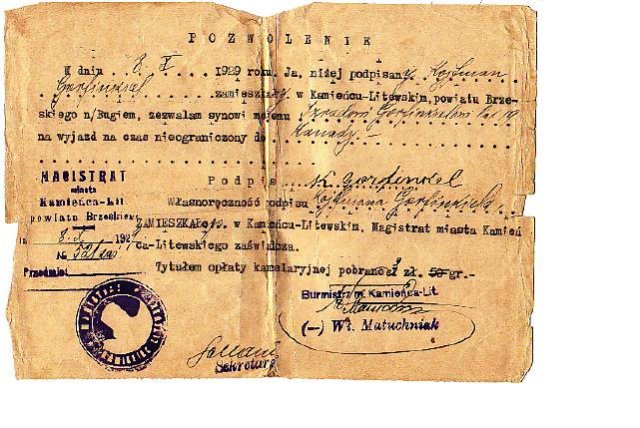 POZWOLENIE
W dniu 8. X. 1929 roku. Ja, niżej podpisany Kojfman
Gorfinkiel zamieszkały w Kamieńcu-Litewskim, powiatu Brze-
skiego n/Bugiem, zezwalam synowi mojemu Gorfinkielowi lat 19
na wyjazd na czas nieograniczony do Kanady.-
Podpis K Gorfinkiel
MAGISTRAT
miasta
Kamieńca-Lit
powiatu Brzeskiego
8. X 192
№
Przedmiot
Własnoręczność podpisu Kojfmana Gorfinkiela
ZAMIESZKAŁEgo. w Kamieńcu-Litewskim, Magistrat miasta Kamień
ca-Litewskiego zaświadcza.
Tytułem opłaty kancelaryjnej pobrano zł. 50 gr.-
Burmistrz m. Kamieńca-Lit.
(—) Wł. Matuchniak
Sekretarz